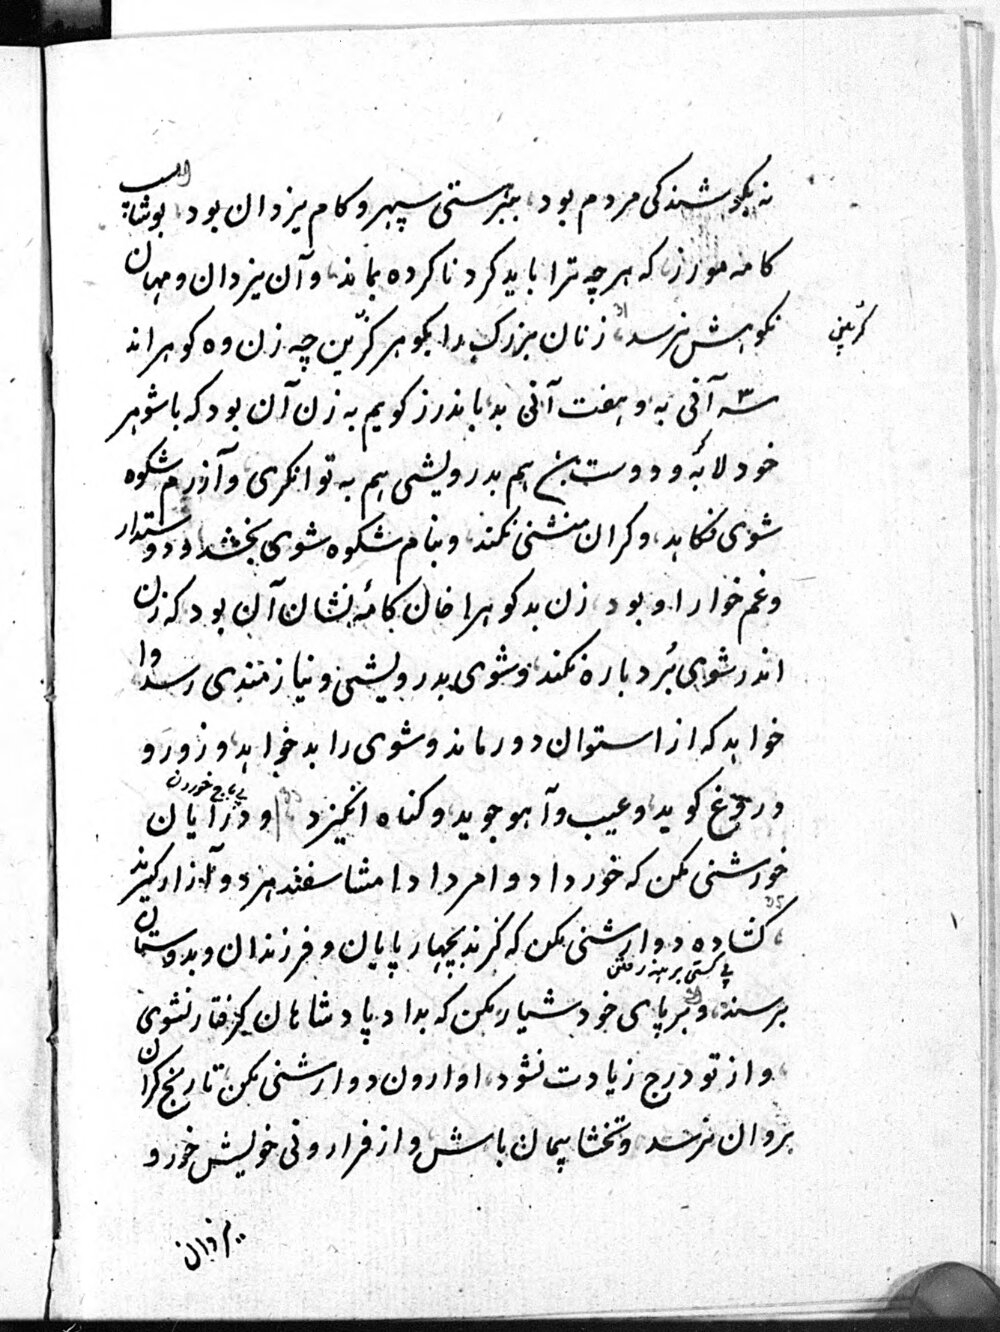 نه بکوشندکی مردم بود، بهترستی سپهر و کام یزدان بود، بوشاسب
کامه مورز، که هر چه ترا باید کرد ناکرده بماند، و آن یزدان و مهان
نکوهش برسد، زنان بزرک را بکوهر کزین چه زن و ه کوهراند
سه آنی به و هفت آنی بد باندرز کویم به زن آن بود که با شوهر
خود لابه و دوست بن هم بدرویشی هم به توانکری و آزرم شکوه
شوی نکاهد، و کران منشنی نکند، و بنام شکوه شوی بخشد و دوستدار
و غم خوار او بود، زن بد کوهر خان کامه نشان آن بود که زن
اندر شوی بُرد باره نکند، و شوی بدرویشی و نیازمندی رسد وا
خواهد که از استوان دور ماند و شوی را بد خواهد، و زور و
دروغ کوید، و عیب و آهو جوید، و کناه انکیزد، و درآیان
بی باج خوردن
خورشنی مکن که خورداد و امرداد امشاسفند هر دو آزار کیرند
کشاده دوارشنی مکن که کزند بچهار پایان و فرزندان و بدوستان
بی کستی برهنه رفتن
برسند، و بر پای خود شیار مکن که بداد پادشاهان کرفتار نشوی
و از تو درج زیادت نشود، اوارون دوارشنی مکن، تا رنج کران
بروان نرسد، و تخشا پیمان باش و از فرارونی خویش خور و